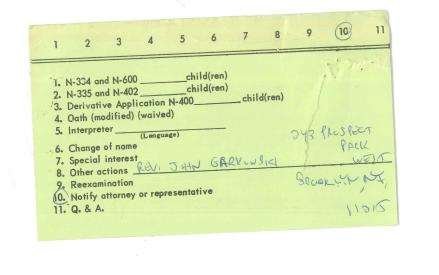 1 2 3 4 5 6 7 8 9 10 11
1. N-334 and N-600 ________ child(ren)
2. N-335 and N-402 ________ child(ren)
3. Derivative Application N-400 ________ child(ren)
4. Oath (modified) (waived)
5. Interpreter ________
(Language)
6. Change of name
7. Special interest
8. Other actions REV. JOHN GARKOWSKI
9. Reexamination
10. Notify attorney or representative
11. Q. & A.
243 PROSPECT
PARK
WEST
BROOKLYN NY,
11215